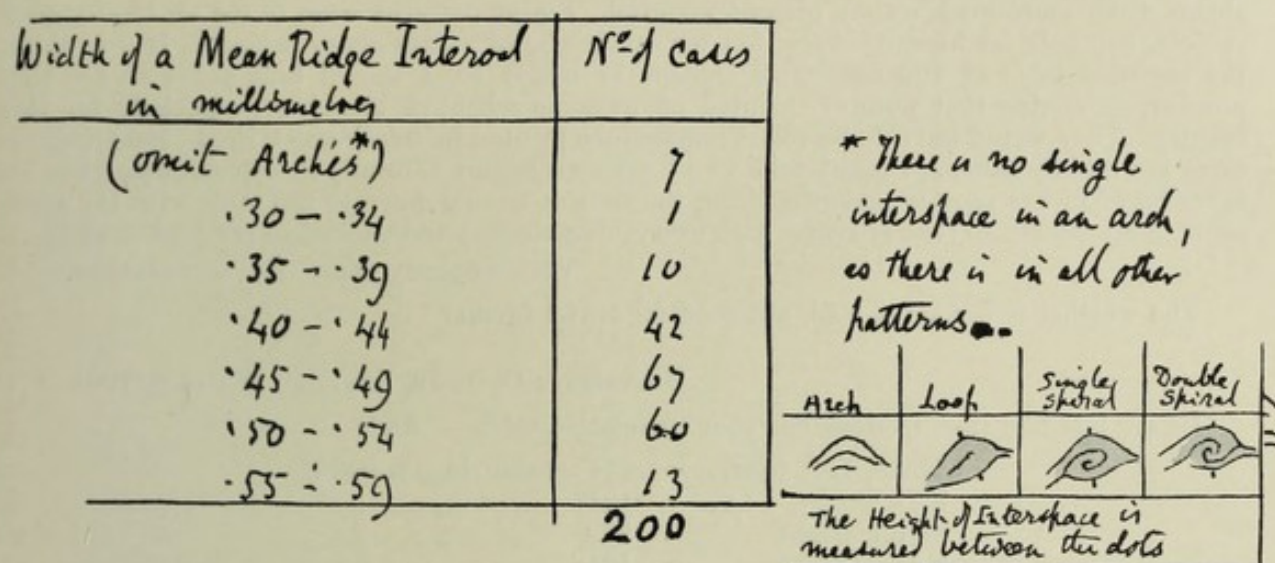 Width of a Mean Ridge Interval
in millimetres
Nº of Cases
(omit Arches*) 7
·30 - ·34 1
·35 - ·39 10
·40 - ·44 42
·45 - ·49 67
·50 - ·54 60
·55 - ·59 13
200
* There is no single
interspace in an arch,
as there is in all other
patterns.
Arch Loop Single Spiral Double Spiral
The Height of Interspace is
measured between the dots